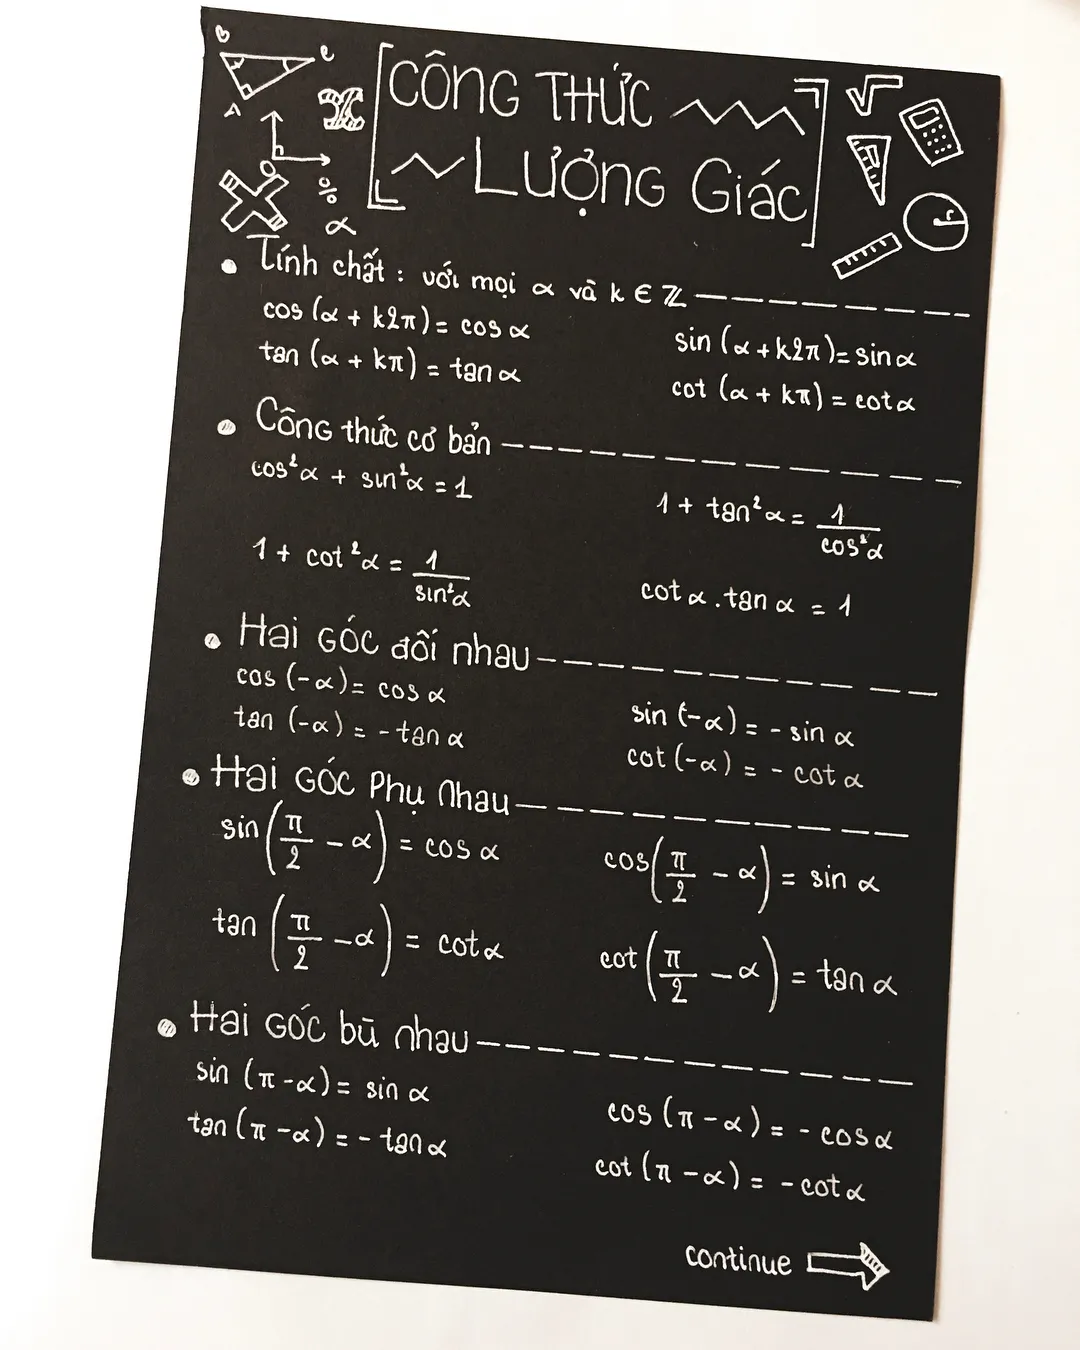 B
C
A
CÔNG THỨC
LƯỢNG GIÁC
%
α
r
Tính chất : với mọi α và k ∈ ℤ
cos (α + k2π) = cos α
sin (α + k2π) = sin α
tan (α + kπ) = tan α
cot (α + kπ) = cot α
Công thức cơ bản
cos²α + sin²α = 1
1 + tan²α = 1/cos²α
1 + cot²α = 1/sin²α
cot α . tan α = 1
Hai Góc đối nhau
cos (-α) = cos α
sin (-α) = - sin α
tan (-α) = - tan α
cot (-α) = - cot α
Hai Góc Phụ Nhau
sin (π/2 - α) = cos α
cos (π/2 - α) = sin α
tan (π/2 - α) = cot α
cot (π/2 - α) = tan α
Hai Góc bù nhau
sin (π - α) = sin α
cos (π - α) = - cos α
tan (π - α) = - tan α
cot (π - α) = - cot α
continue